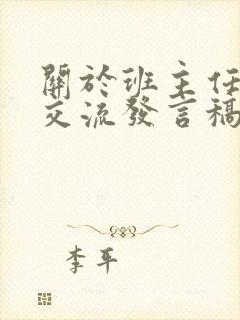 關於班主任
交流發言稿
李平